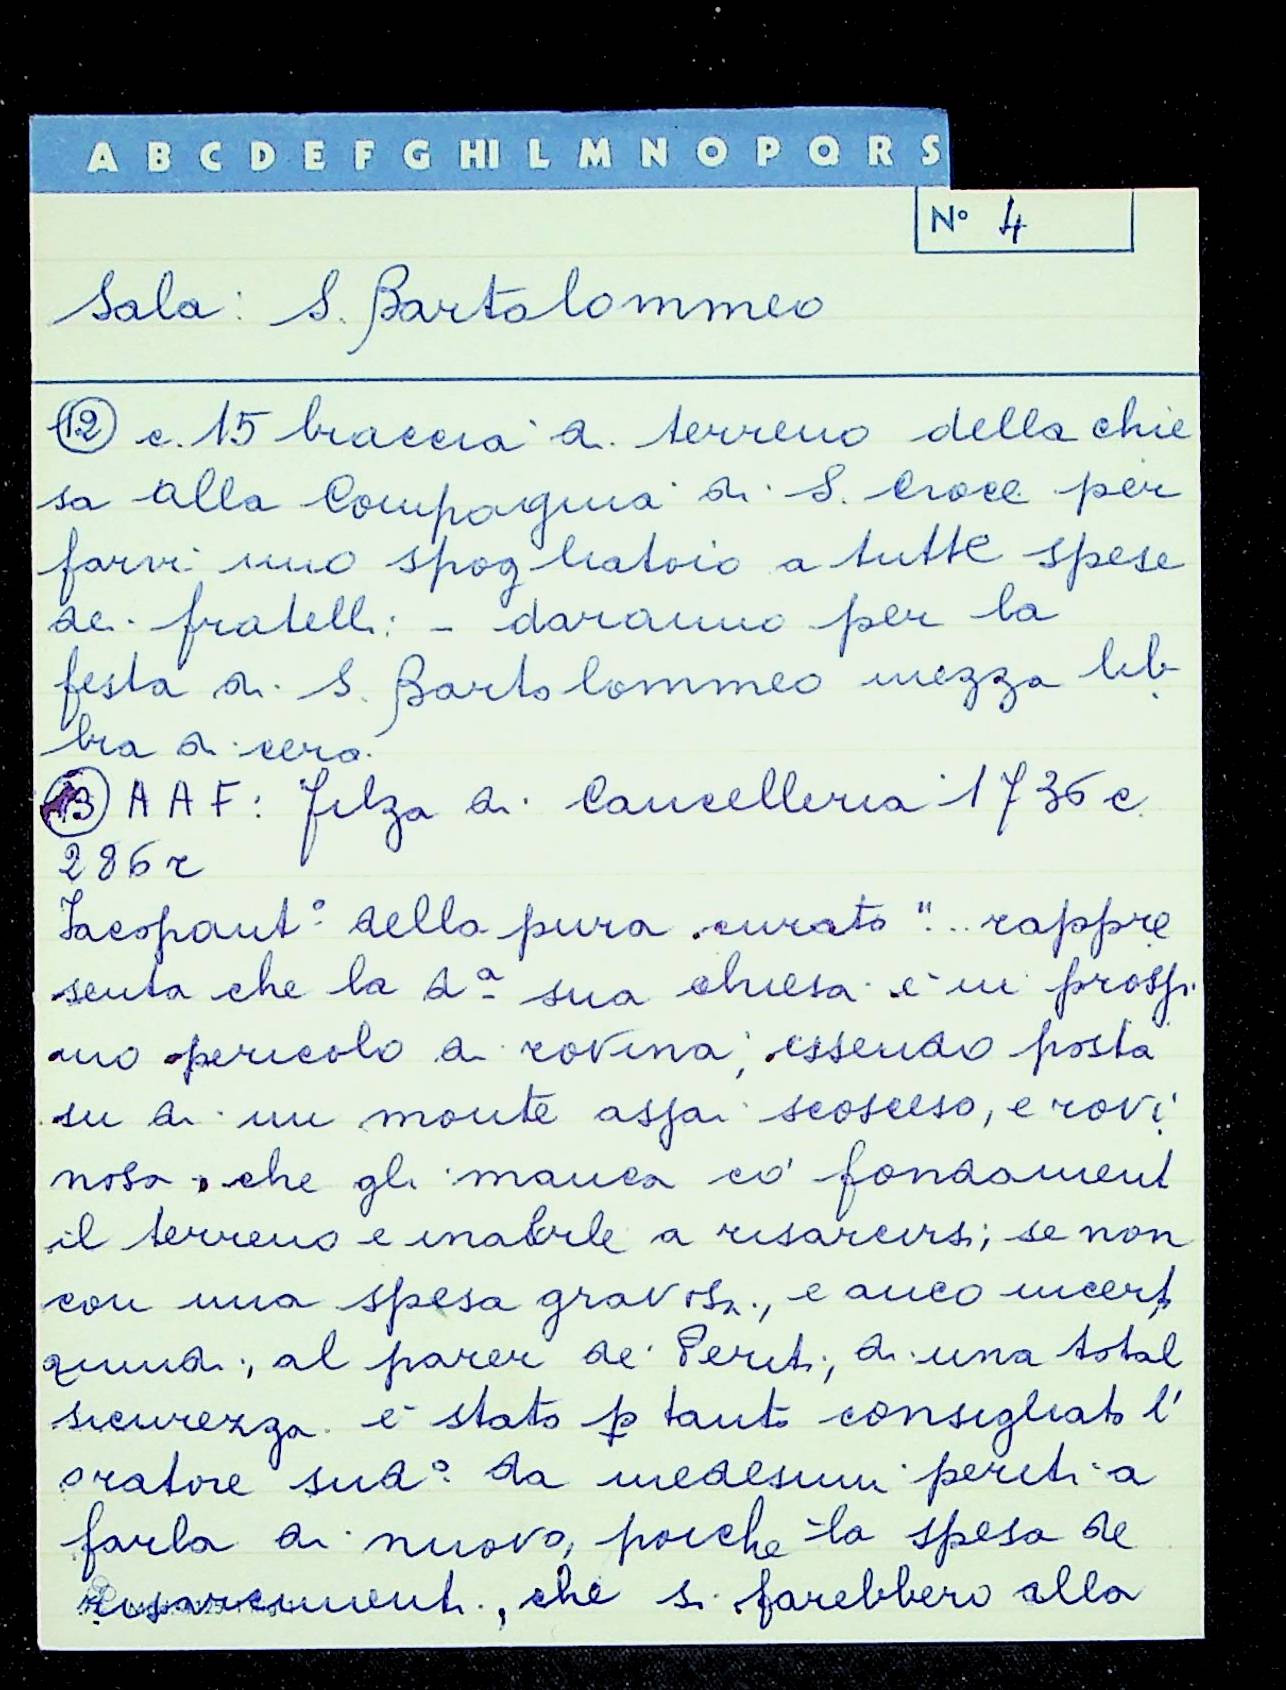 A B C D E F G HI L M N O P Q R S
N° 4
Sala: S. Bartolommeo
12 c. 15 braccia di terreno della chie
sa alla Compagnia di S. Croce per
farvi uno spogliatoio a tutte spese
dei fratelli: - daranno per la
festa di S. Bartolommeo mezza lib-
bra di cera.
13 A A F: Filza di Cancelleria 1736 c.
286 r
Jacopant° della pura curato "... rappre
senta che la d.ª sua chiesa è in prossi
mo pericolo di rovina, essendo posta
su di un monte assai scosceso, e rovi
noso, che gli manca co' fondament
il terreno e inabile a risarcirsi; se non
con una spesa gravosa, e anco incert
quindi, al parer de' Periti, di una total
sicurezza. è stato p tanto consigliato l'
oratore sud° da medesimi periti a
farla di nuovo, poiche la spesa de
risarcimenti, che si farebbero alla